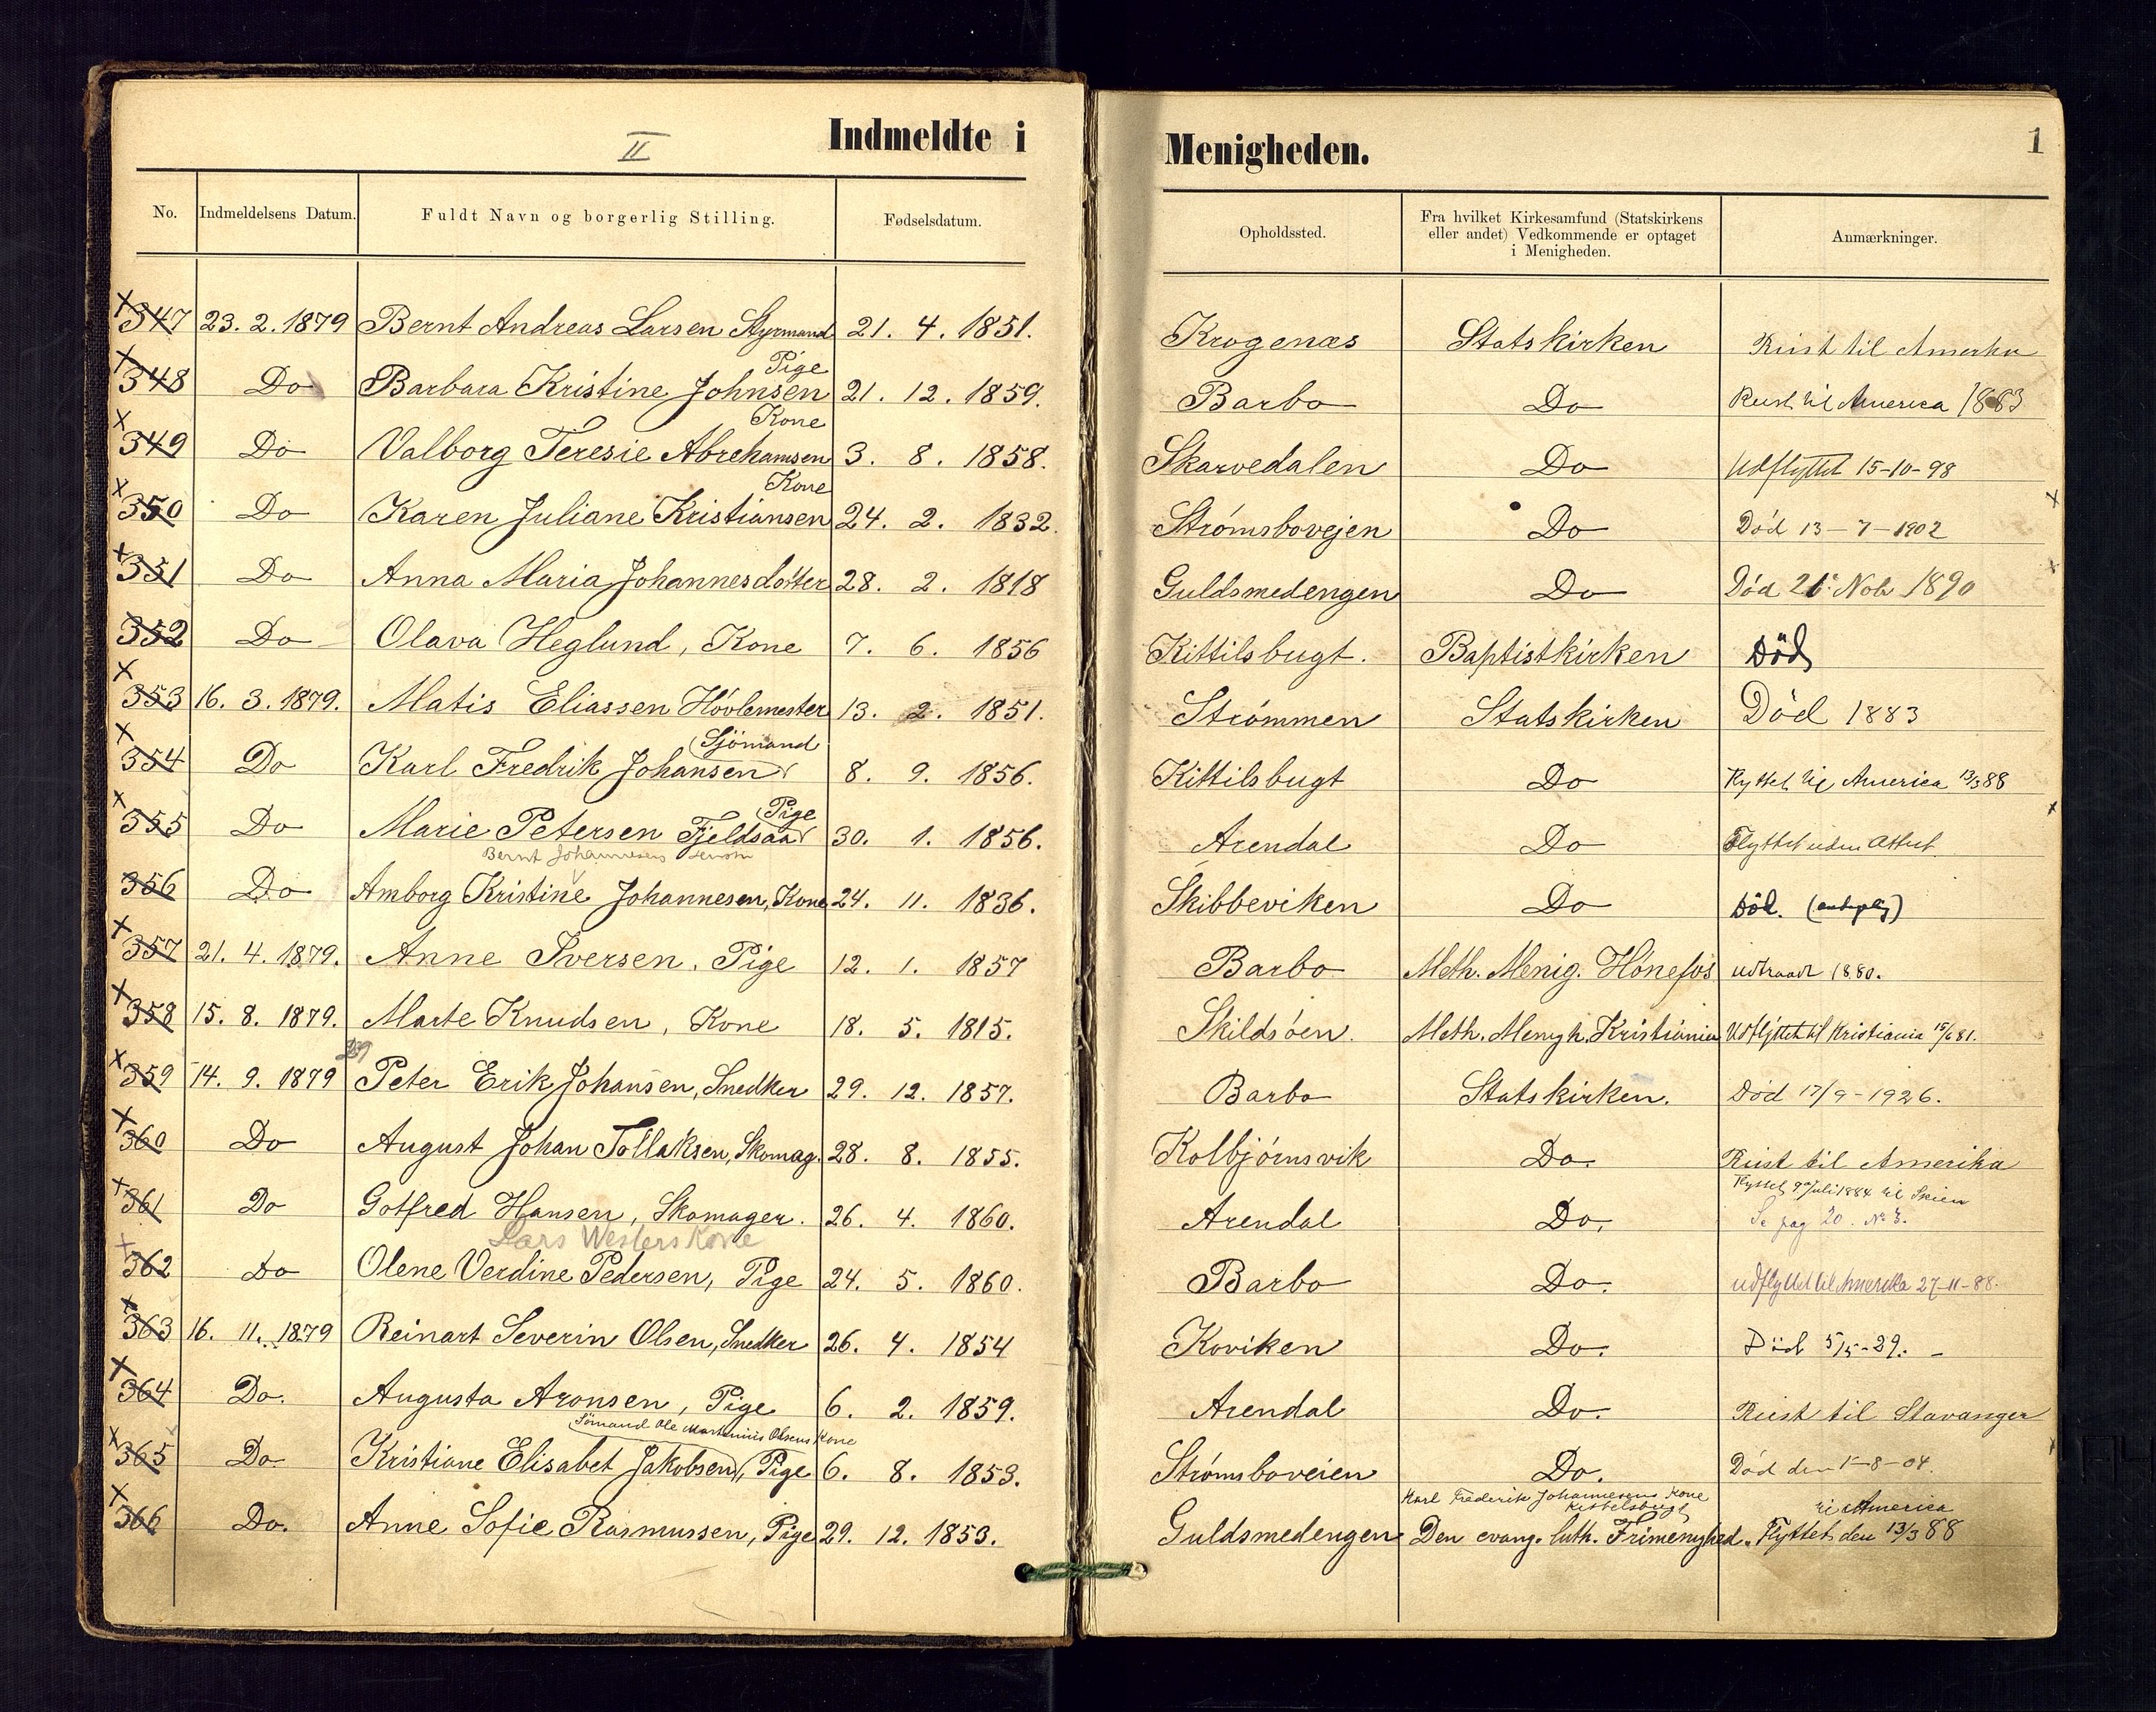 II
Indmeldte i Menigheden.
1
No. Indmeldelsens Datum. Fuldt Navn og borgerlig Stilling. Fødselsdatum. Opholdssted. Fra hvilket Kirkesamfund (Statskirkens eller andet) Vedkommende er optaget i Menigheden. Anmærkninger.
x 347 23. 2. 1879 Bernt Andreas Larsen Styrmand 21. 4. 1851. Krogenæs Statskirken Reist til Amerka
x 348 Do Barbara Kristine Johnsen Pige 21. 12. 1859. Barbo Do Reist til America 1883
x 349 Do Valborg Teresie Abrehamsen Kone 3. 8. 1858. Skarvedalen Do Udflyttet 15-10-98
x 350 Do Karen Juliane Kristiansen Kone 24. 2. 1832. Strømsbovejen Do Død 13-7-1902
x 351 Do Anna Maria Johannesdotter 28. 2. 1818 Guldsmedengen Do Død 21 Nob 1890
352 Do Olava Heglund, Kone 7. 6. 1856 Kittilsbugt. Baptistkirken Död
x 353 16. 3. 1879. Matis Eliassen Hövlemester 13. 2. 1851. Strømmen Statskirken Död 1883
x 354 Do Karl Fredrik Johansen (Sjömand) 8. 9. 1856. Kittilsbugt Do Flyttet til America 13/3 88
x 355 Do Marie Petersen Fjeldsaa (Pige) 30. 1. 1856. Arendal Do Flyttet uden Attest.
Bernt Johannesens
356 Do Amborg Kristine Johannesen, Kone 24. 11. 1836. Skibbeviken Do Död.
x 357 21. 4. 1879. Anne Iversen, Pige 12. 1. 1857 Barbo Meth. Menig. Hönefos udtraadt 1880.
x 358 15. 8. 1879. Marte Knudsen, Kone 18. 5. 1815. Skildsöen. Meth. Menigh. Kristiania Udflyttet til Kristiania 15/6 81.
x 359 14. 9. 1879 Peter Erik Johansen, Snedker 29. 12. 1857. Barbo Statskirken. Död 17/9-1926.
x 360 Do August Johan Tollaksen, Skomag. 28. 8. 1855. Kolbjörnsvik Do. Reist til Amerika
Flyttet 9 Juli 1884 til Skien
x 361 Do Gotfred Hansen, Skomager. 26. 4. 1860. Arendal Do. Se pag 20. No 3.
Lars Westers Kone
x 362 Do Olene Verdine Pedersen, Pige 24. 5. 1860. Barbo Do. udflyttet til Amerika 27-11-88.
x 363 16. 11. 1879 Reinart Severin Olsen, Snedker 26. 4. 1854 Koviken Do. Död 5/5-29.
x 364 Do. Augusta Aronsen, Pige 6. 2. 1859. Arendal Do. Reist til Stavanger
Sömand Ole Martinius Olsens Kone
x 365 Do Kristiane Elisabet Jakobsen, Pige 6. 8. 1853. Strömsboveien Do. Död den 1-8-04.
Karl Frederik Johannesens Kone Kittelsbugt
x 366 Do. Anne Sofie Rasmussen, Pige 29. 12. 1853. Guldsmedengen Den evang. luth. Frimenighed. Flyttet til America den 13/3 88